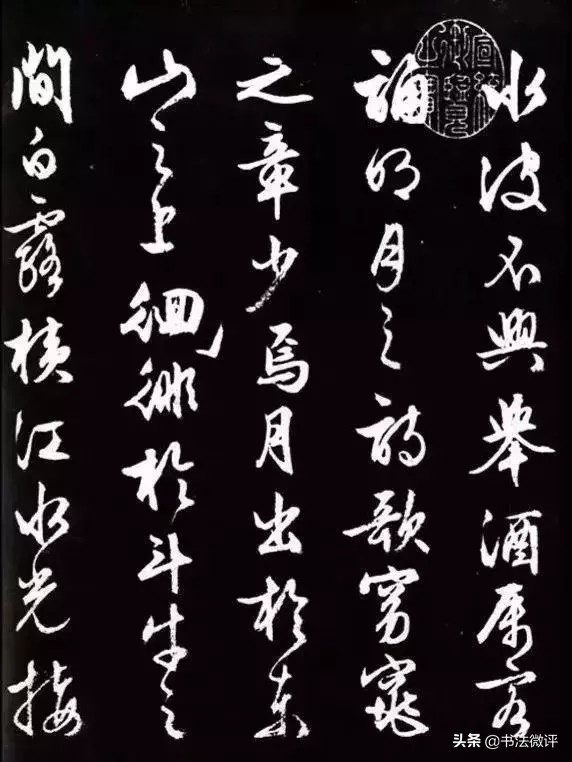 水波不興舉酒属客
誦明月之詩歌窈窕
之章少焉月出於東
山之上徊徘於斗牛之
間白露橫江水光接
宣統御覽之寶
头条 @书法微评